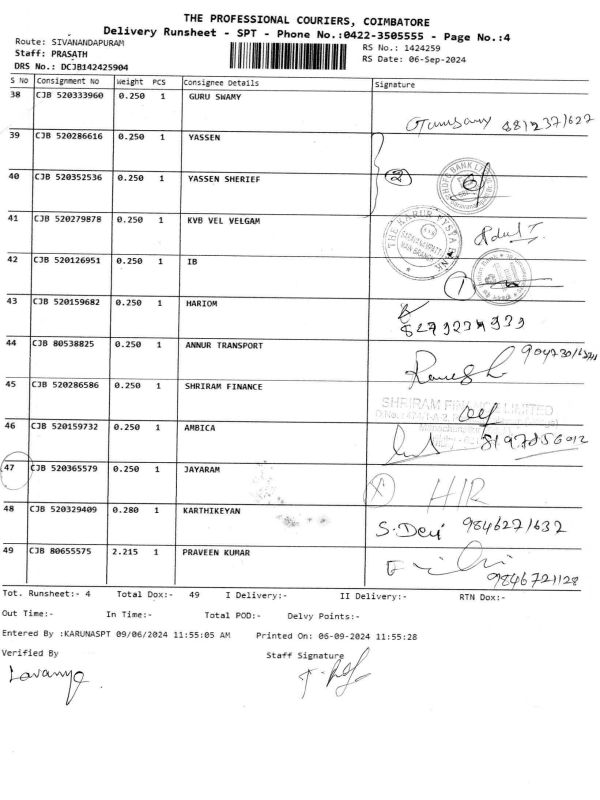 THE PROFESSIONAL COURIERS, COIMBATORE
Delivery Runsheet - SPT - Phone No.:0422-3505555 - Page No.:4
Route: SIVANANDAPURAM RS No.: 1424259
Staff: PRASATH RS Date: 06-Sep-2024
DRS No.: DCJB142425904
S No Consignment No Weight PCS Consignee Details Signature
38 CJB 520333960 0.250 1 GURU SWAMY
39 CJB 520286616 0.250 1 YASSEN
40 CJB 520352536 0.250 1 YASSEN SHERIEF 2
41 CJB 520279878 0.250 1 KVB VEL VELGAM
THE KARUR VYSYA BANK
42 CJB 520126951 0.250 1 IB 1
43 CJB 520159682 0.250 1 HARIOM
44 CJB 80538825 0.250 1 ANNUR TRANSPORT
Ramesh
45 CJB 520286586 0.250 1 SHRIRAM FINANCE
SHRIRAM FINANCE LIMITED
46 CJB 520159732 0.250 1 AMBICA
47 CJB 520365579 0.250 1 JAYARAM
48 CJB 520329409 0.280 1 KARTHIKEYAN
S. Devi 9846271632
49 CJB 80655575 2.215 1 PRAVEEN KUMAR
9846721128
Tot. Runsheet:- 4 Total Dox:- 49 I Delivery:- II Delivery:- RTN Dox:-
Out Time:- In Time:- Total POD:- Delvy Points:-
Entered By :KARUNASPT 09/06/2024 11:55:05 AM Printed On: 06-09-2024 11:55:28
Verified By Staff Signature
Lavanya